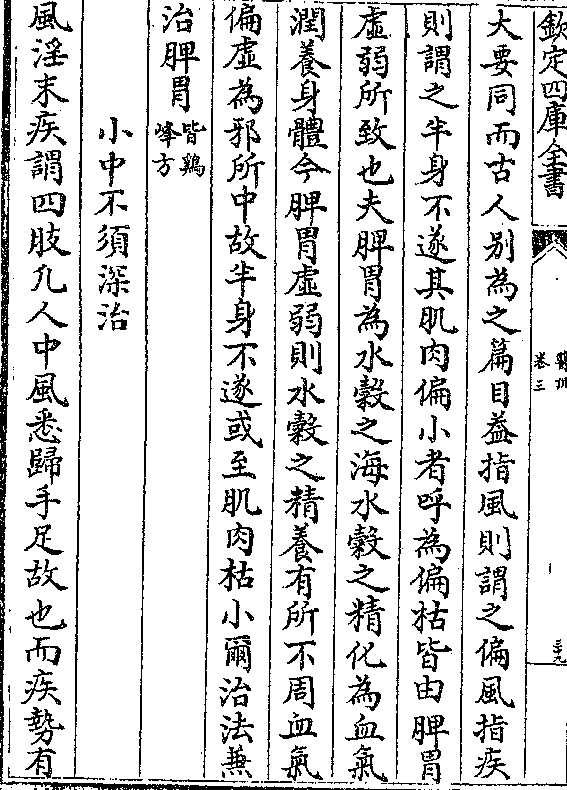 欽定四庫全書
醫說
卷三
三十九
大要同而古人别為之篇目葢指風則謂之偏風指疾
則謂之半身不遂其肌肉偏小者呼為偏枯皆由脾胃
虛弱所致也夫脾胃為水穀之海水穀之精化為血氣
潤養身體今脾胃虛弱則水穀之精養有所不周血氣
偏虛為邪所中故半身不遂或至肌肉枯小爾治法兼
治脾胃皆鷄峰方
小中不須深治
風淫末疾謂四肢凡人中風悉歸手足故也而疾勢有